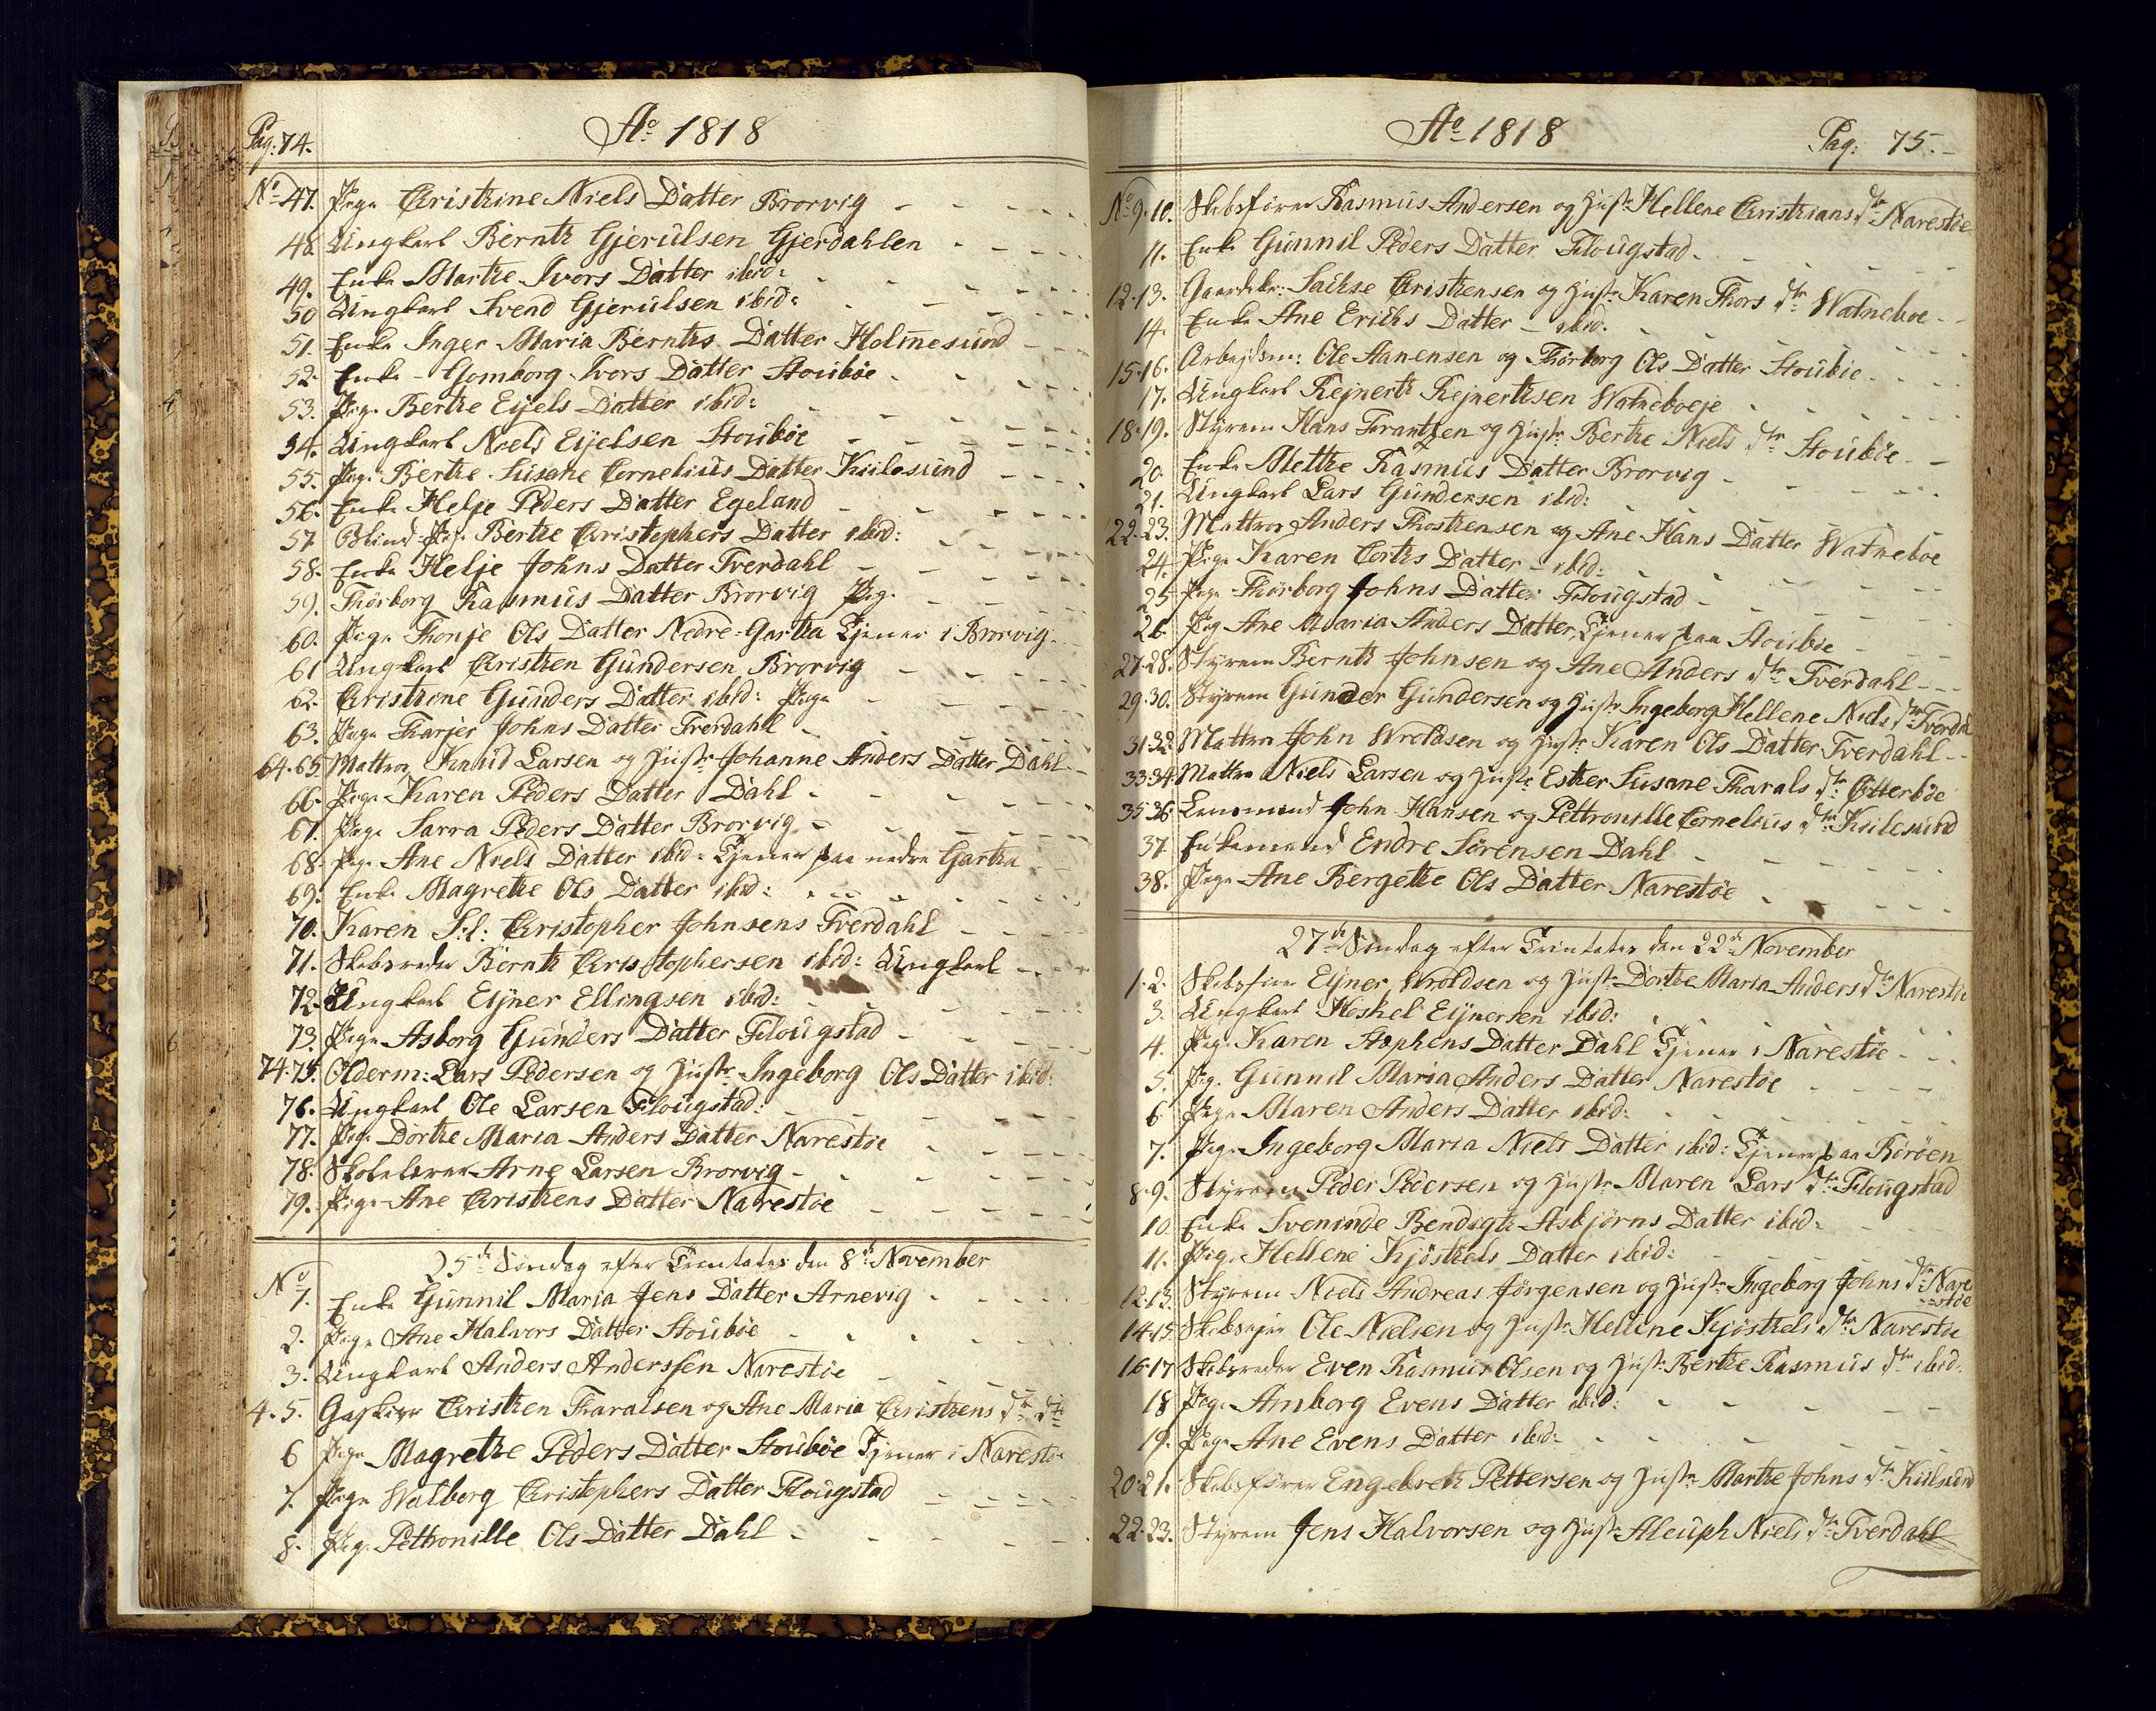 Pag. 74.
Ao 1818
No 47. Pige Christine Niels Datter Brorvig
48. Ungkarl Bernth Gjerulsen Gjerdahlen
49. Enke Marthe Ivors Datter ibid:
50 Ungkarl Svend Gjerulsen ibid:
51. Enke Inger Maria Bernths Datter Holmesund
52. Enke Gomborg Ivors Datter Stoubøe
53. Pige Berthe Eijels Datter ibid:
54. Ungkarl Niels Eijelsen Stoubøe
55. Pige Berthe Susane Cornelius Datter Kiilesund
56. Enke Helje Peders Datter Egeland
57. Blind Pige Berthe Christophers Datter ibid:
58. Enke Helje Johns Datter Tverdahl
59. Thorborg Rasmus Datter Brorvig Pige
60. Pige Thonje Ols Datter Nedre-Gartha Tjener i Brorvig
61 Ungkarl Christhen Gundersen Brorvig
62. Christhine Gunders Datter ibid: Pige
63. Pige Tharjer Johns Datter Tverdahl
64.65. Mattros Knud Larsen og Hustr Johanne Anders Datter Dahl
66. Pige Karen Peders Datter Dahl
67. Pige Sarra Peders Datter Brorvig
68. Pige Ane Niels Datter ibid: Tjener paa nedre Gartha
69. Enke Magrethe Ols Datter ibid:
70. Karen Sl: Christopher Johnsens Tverdahl
71. Skibsreder Bernth Christophersen ibid: Ungkarl
72. Ungkarl Eijner Ellingsen ibid:
73. Pige Asborg Gunders Datter Flougstad
74.75. Olderm: Lars Pedersen og Hustr Ingeborg Ols Datter ibid:
76. Ungkarl Ole Larsen Flougstad:
77. Pige Dorthe Maria Anders Datter Narestøe
78. Skolelærer Arne Larsen Brorvig
79. Pige Ane Christhens Datter Narestøe
25de Søndag efter Trinitatis den 8de November
No 1. Enke Gunnil Maria Jens Datter Arnevig
2. Pige Ane Halvors Datter Stoubøe
3. Ungkarl Anders Anderssen Narestøe
4.5. Christhen Tharalsen og Ane Maria Christhens dtr dto
6 Pige Magrethe Peders Datter Stoubøe Tjener i Narestøe
7. Pige Walborg Christophers Datter Flougstad
8. Pige Pettronille Ols Datter Dahl
Ao 1818
Pag: 75.
No 9.10. Skibsfører Rasmus Andersen og Hustr Hellene Christhians dtr Narestøe
11. Enke Gunnil Peders Datter Flougstad
12.13. Gaardbr: Sachse Christhensen og Hustr Karen Thors dtr Watneboe
14. Enke Ane Erichs Datter ibid:
15.16. Arbejdsm: Ole Aanensen og Thorborg Ols Datter Stoubøe
17. Ungkarl Rejnerth Rejnerthsen Watneboeje
18.19. Styrem Hans Frantzen og Hustr Berthe Niels dtr Stoubøe
20. Enke Methe Rasmus Datter Brorvig
21. Ungkarl Lars Gundersen ibid:
22.23. Mattros Anders Thosthensen og Ane Hans Datter Watneboe
24. Pige Karen Corths Datter ibid:
25 Pige Thorborg Johns Datter Flougstad
26. Pig Ane Maria Anders Datter, Tjener paa Stoubøe
27.28. Styrem Bernth Johnsen og Ane Anders dtr Tverdahl
29.30. Styrem Gunder Gundersen og Hustr Ingeborg Hellene Niels dtr Tverdal
31.32. Mattros John Wroldsen og Hustr Karen Ols Datter Tverdahl
33.34 Mattros Niels Larsen og Hustr Esther Susane Tharals dtr Otterbøe
35.36 Lensmand John Hansen og Pettronille Cornelius dtr Kiilesund
37. Enkemand Endre Sørensen Dahl
38. Pige Ane Bergethe Ols Datter Narestøe
27de Søndag efter Trinitatis den 22de November
1.2. Skibsfører Eijner Wroldsen og Hustr Dorthe Maria Anders dtr Narestøe
3. Ungkarl Heskel Eijnersen ibid:
4. Pige Karen Stephens Datter Dahl Tjener i Narestøe
5. Pig. Gunnil Maria Anders Datter Narestøe
6 Pige Maren Anders Datter ibid:
7. Pige Ingeborg Maria Niels Datter ibid: Tjener paa Børøen
8.9. Styrem Peder Pedersen og Hustr Maren Lars dtr Flougstad
10. Enke Sveninde Bendigte Asbjørns Datter ibid:
11. Pige Hellene Kjøsthels Datter ibid:
12.13. Styrem Niels Andreas Jørgensen og Hustr Ingeborg Johns dtr Nare
støe
14.15. Skibsejer Ole Nielsen og Hustr Hellene Kjøsthels dtr Narestøe
16.17 Skibsreder Even Rasmus Olsen og Hustr Berthe Rasmus dtr ibid:
18 Pige Amborg Evens Datter ibid:
19. Pige Ane Evens Datter ibid:
20.21. Skibsfører Engebreth Pettersen og Hustr Marthe Johns dtr Kiilsund
22.23. Styrem Jens Halvorsen og Hustr Aleuph Niels dtr Tverdahl